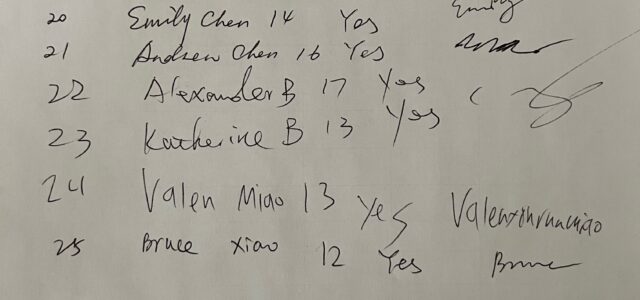 20 Emily Chen 14 Yes Emily
21 Andrew Chen 16 Yes
22 Alexander B 17 Yes
23 Katherine B 13 Yes
24 Valen Miao 13 Yes
25 Bruce Xiao 12 Yes Bruce